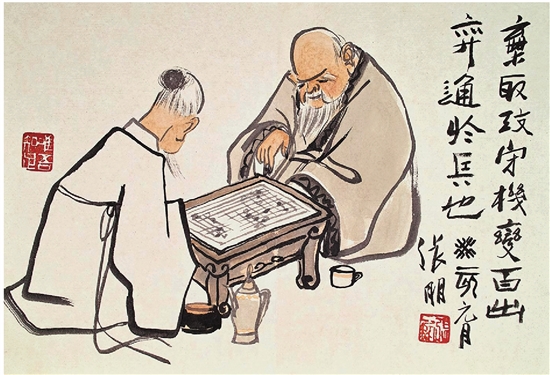 棄取攻守機變百出
弈通於兵也 癸亥元月
張朋